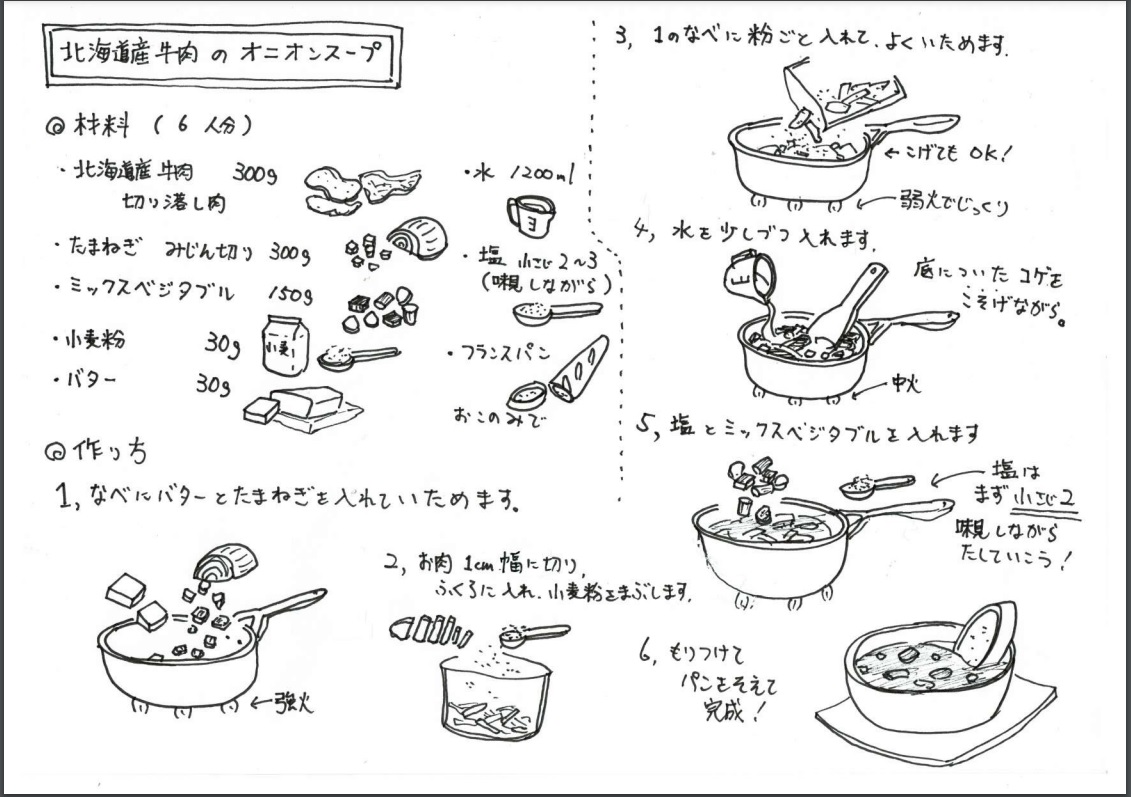 北海道産牛肉のオニオンスープ
◎材料（6人分）
・北海道産牛肉 300g
切り落し肉
・たまねぎ みじん切り 300g
・ミックスベジタブル 150g
・小麦粉 30g
小麦
・バター 30g
・水 1200ml
・塩 小さじ2〜3
（味見しながら）
・フランスパン
おこのみで
◎作り方
1, なべにバターとたまねぎを入れていためます。
←強火
2, お肉1cm幅に切り、
ふくろに入れ、小麦粉をまぶします。
3, 1のなべに粉ごと入れて、よくいためます。
←こげてもOK!
←弱火でじっくり
4, 水を少しづつ入れます。
底についたコゲを
こそげながら。
←中火
5, 塩とミックスベジタブルを入れます
←塩は
まず小さじ2
味見しながら
たしていこう!
6, もりつけて
パンをそえて
完成!